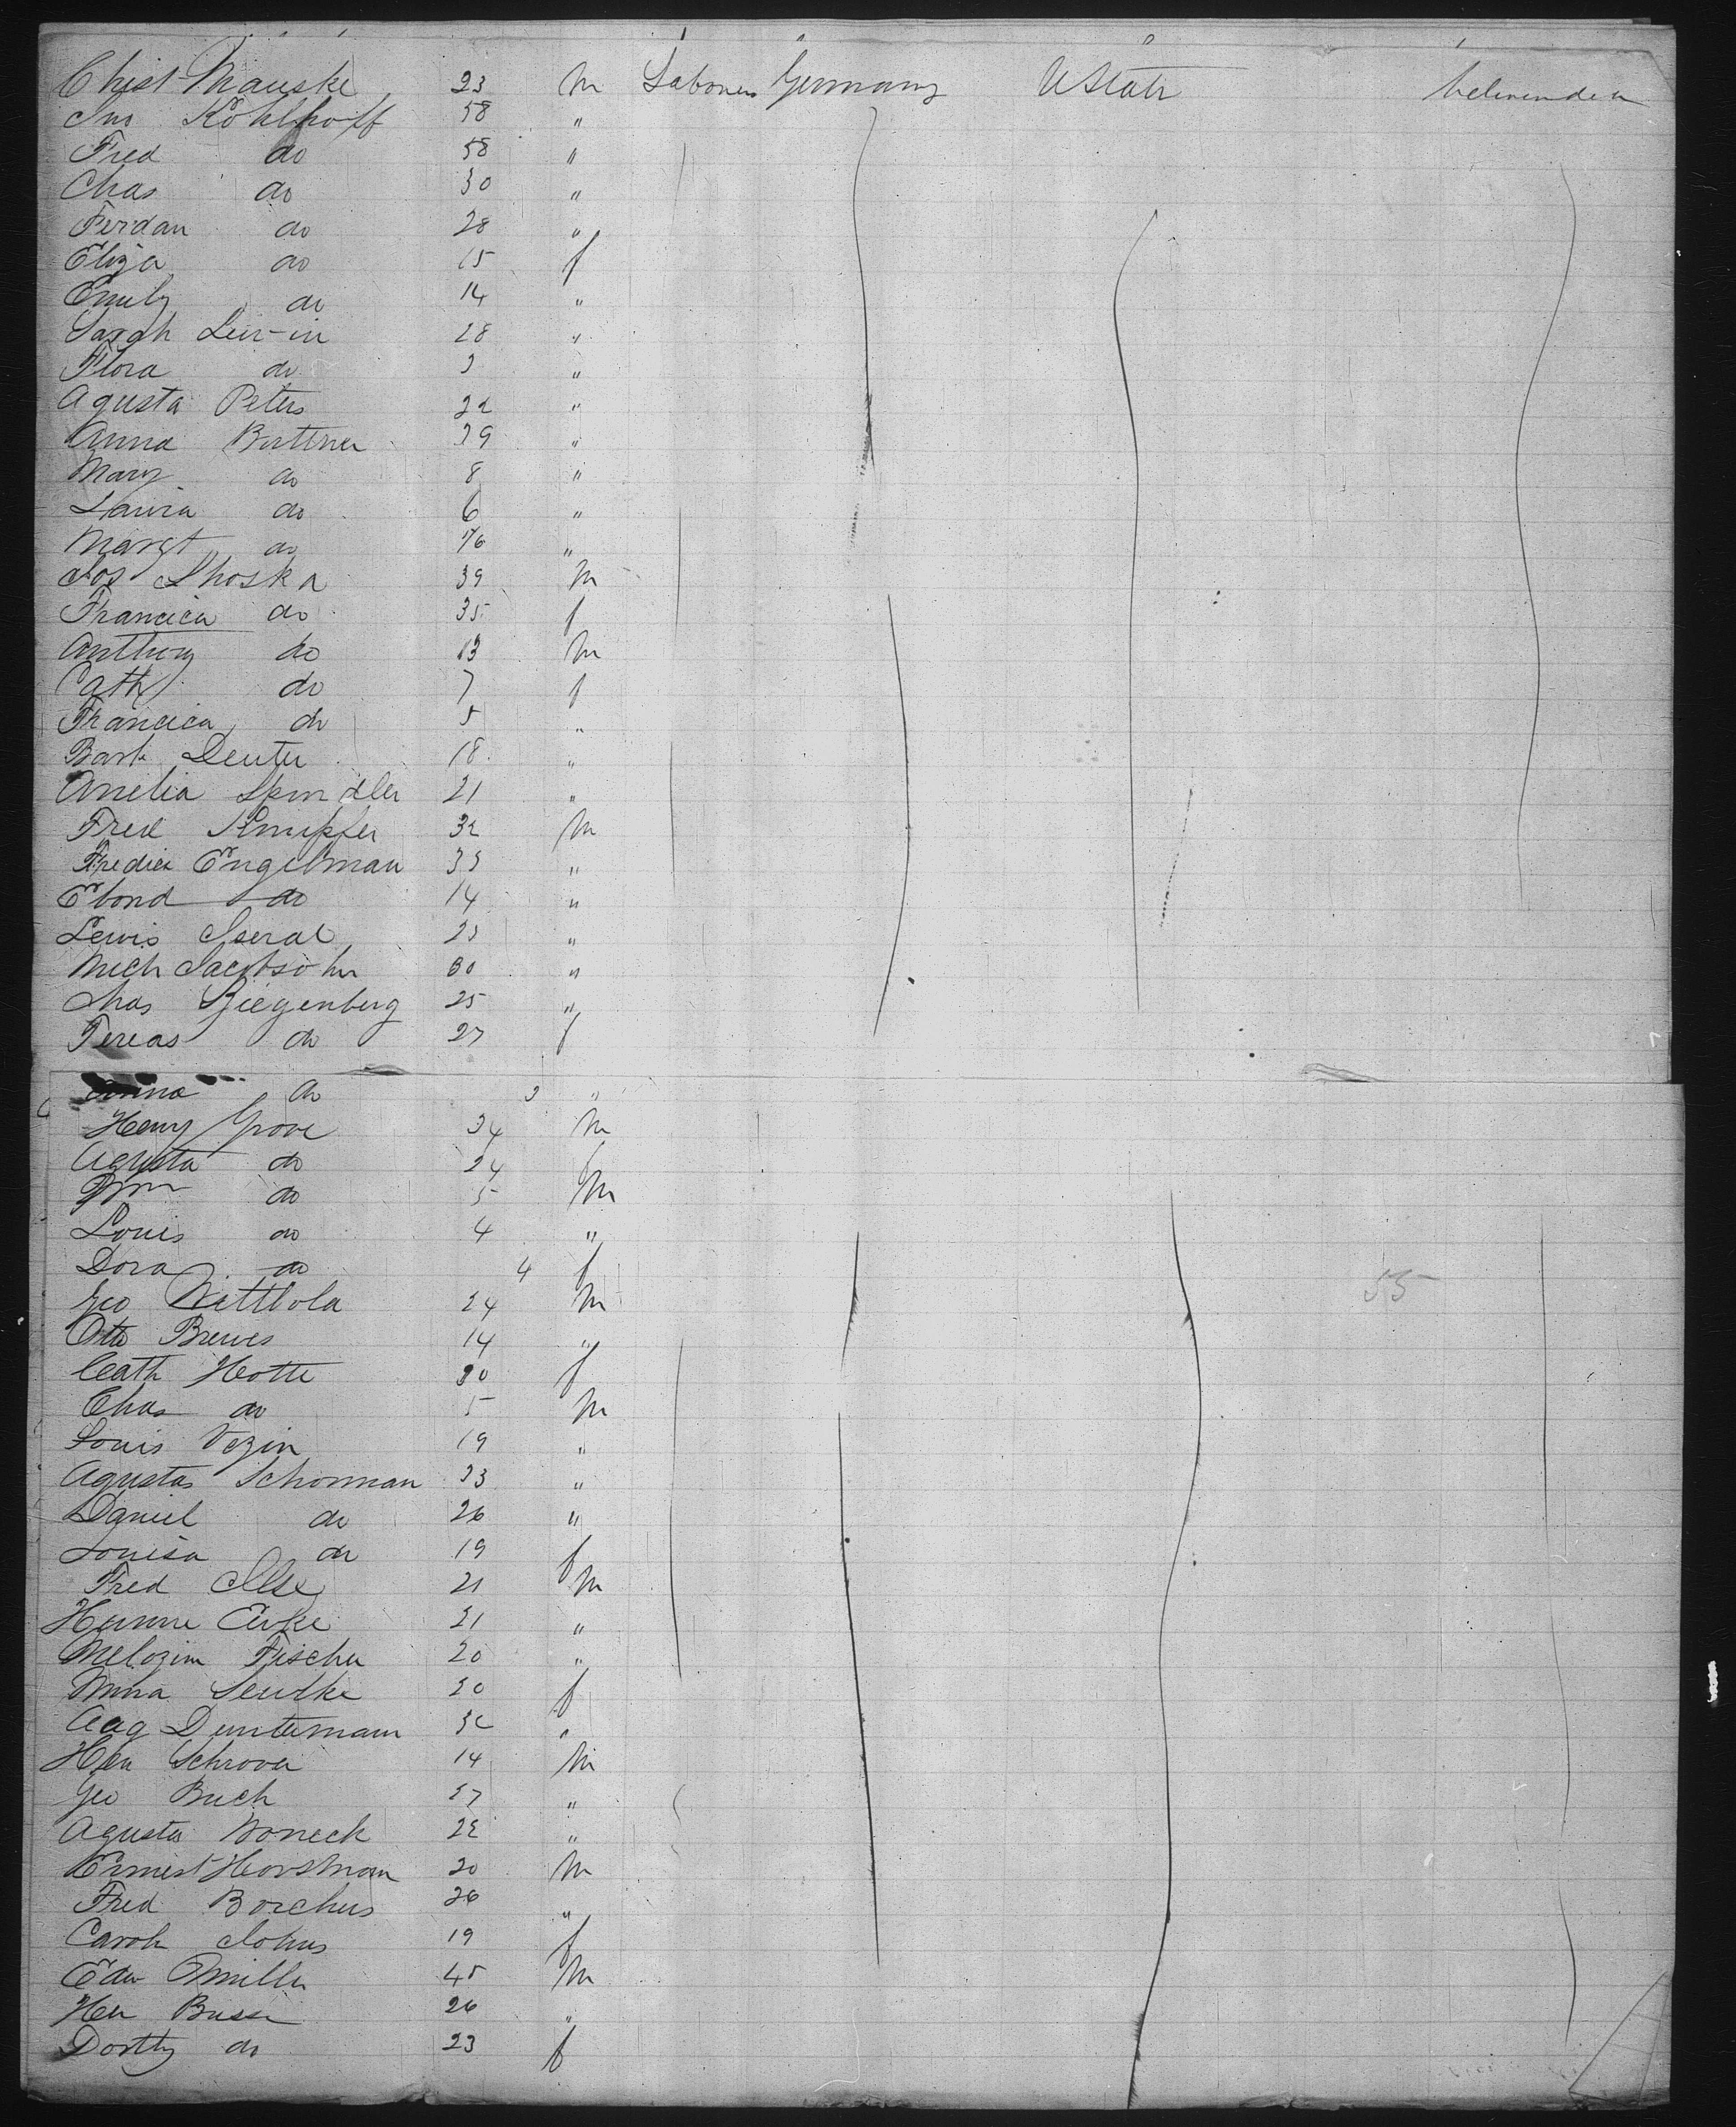 Christ Mauske 23 m Laborers Germany UStats
Jno Kohlhoff 58 "
Fred do 58 "
Chas do 30 "
Ferdan do 28 "
Eliza do 15 f
Emily do 14 "
Sarah 28 "
Flora do 3 "
Agusta Peters 22 "
Anna Buttner 39 "
Mary do 8 "
Laura do 6 "
Margt do "
Jos Lhoska 39 m
Francica do 35 f
Anthony do 13 m
Cath do 7 f
Francica do 5 "
Barb Deuter 18 "
Amelia Spindler 21 "
Fred Knupfer 32 m
Fredick Engelman 35 "
Ebond do 14 "
Lewis Iseral 23 "
Mich Jacobsohn 30 "
Chas Ziegenberg 25 "
Tereas do 27 f
Anna do 3 "
Henry Grove 34 m
Agusta do 24 f
Wm do 5 m
Louis do 4 "
Dora do 4 f
Geo 24 m
55
Otto Brewes 14 "
Cath Hotte 30 f
Chas do 5 m
Louis Vezin 19 "
Agustas Schonman 33 "
Daniel do 26 "
Louisa do 19 f
Fred Ilse 21 m
21 "
Fischer 20 "
Mina 20 f
Aug Duntemann "
Hen 14 m
Geo Buch 27 "
Agusta Woneck "
Ernest Horstman 20 m
Fred Borchers 26 "
Carol Johns 19 f
Edw Miller 45 m
Hen Busse 26 "
Dortty do 23 f